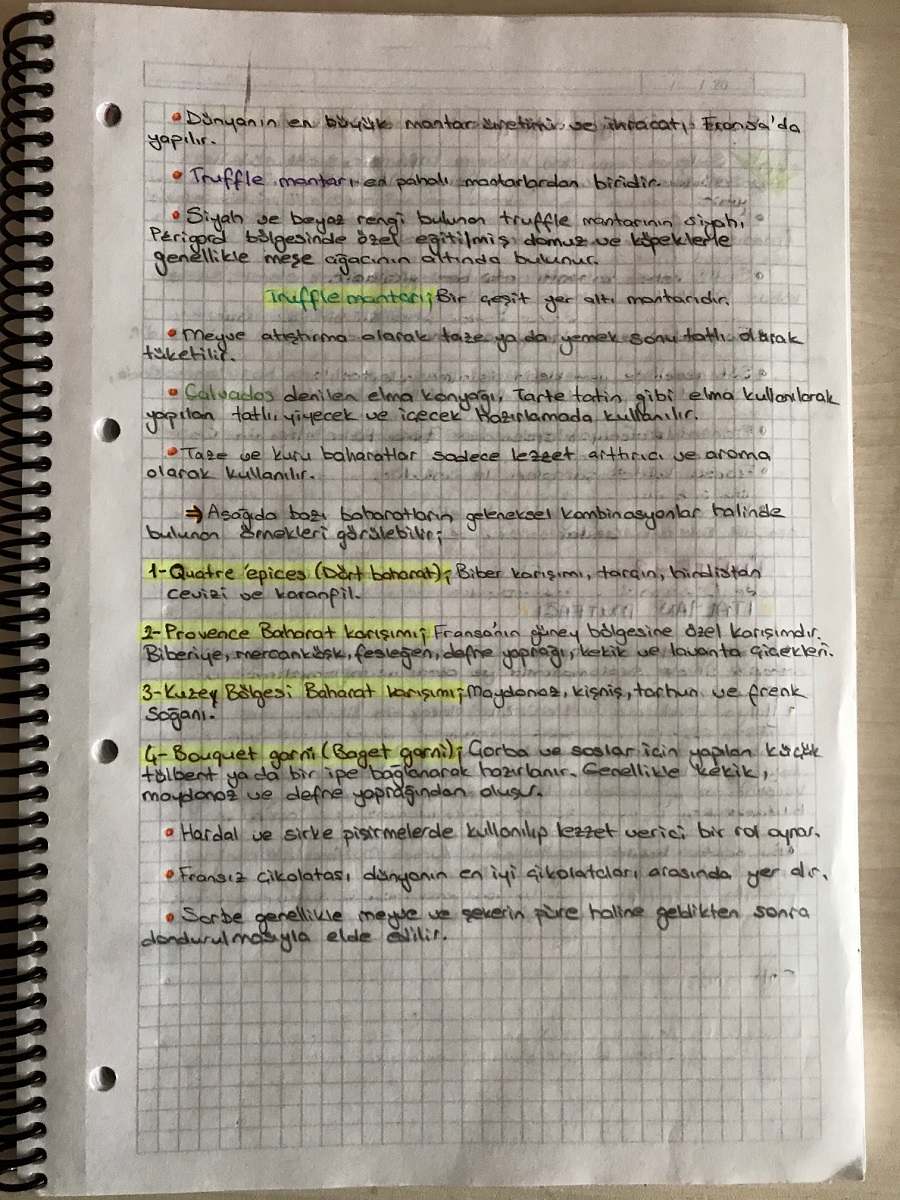 • Dünyanın en büyük mantar üretimi ve ihracatı Fransa'da
yapılır.
• Truffle mantarı en pahalı mantarlardan biridir.
• Siyah ve beyaz rengi bulunan truffle mantarının siyahı
Périgord bölgesinde özel eğitilmiş domuz ve köpeklerle
genellikle meşe ağacının altında bulunur.
Truffle mantarı; Bir çeşit yer altı mantarıdır.
• Meyve atıştırma olarak taze ya da yemek sonu tatlı olarak
tüketilir.
• Calvados denilen elma konyağı, Tarte tatin gibi elma kullanılarak
yapılan tatlı, yiyecek ve içecek Hazırlamada kullanılır.
• Taze ve kuru baharatlar sadece lezzet arttırıcı ve aroma
olarak kullanılır.
⇒ Aşağıda bazı baharatların geleneksel kombinasyonlar halinde
bulunan örnekleri görülebilir;
1-Quatre épices (Dört baharat); Biber karışımı, tarçın, hindistan
cevizi ve karanfil.
2-Provence Baharat karışımı; Fransa'nın güney bölgesine özel karışımdır.
Biberiye, mercanköşk, fesleğen, defne yaprağı, kekik ve lavanta çiçekleri.
3-Kuzey Bölgesi Baharat karışımı; Maydanoz, kişniş, tarhun ve frenk
soğanı.
4-Bouquet garni (Baget garni); Çorba ve soslar için yapılan küçük
tülbent ya da bir ipe bağlanarak hazırlanır. Genellikle kekik,
maydanoz ve defne yaprağından oluşur.
• Hardal ve sirke pişirmelerde kullanılıp lezzet verici bir rol oynar.
• Fransız çikolatası, dünyanın en iyi çikolatalıarı arasında yer alır.
• Sorbe genellikle meyve ve şekerin püre haline geldikten sonra
dondurulmasıyla elde edilir.